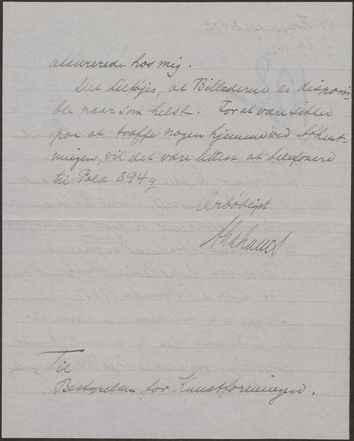 assurerede hos mig.
Det tilføjes, at Billederne er disponi-
ble naar som helst. For at være sikker
paa at træffe nogen hjemme ved Afhent-
ningen, vil det være bedst at telefonere
til Palæ 3949
Ærbødigst
Til
Bestyrelsen for Kunstforeningen.